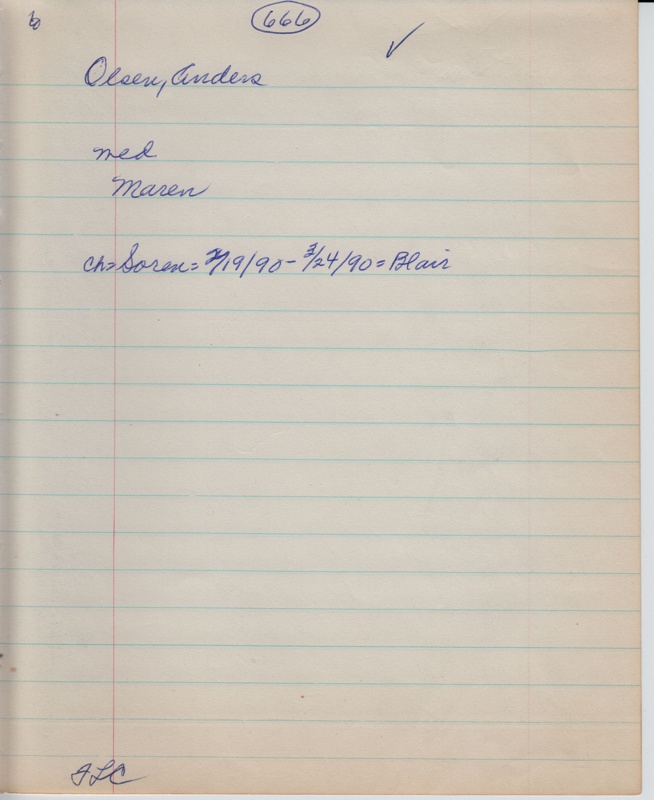 666
Olsen, Anders
med
Maren
ch= Soren = /19/90 - 3/24/90 = Blair
FLC